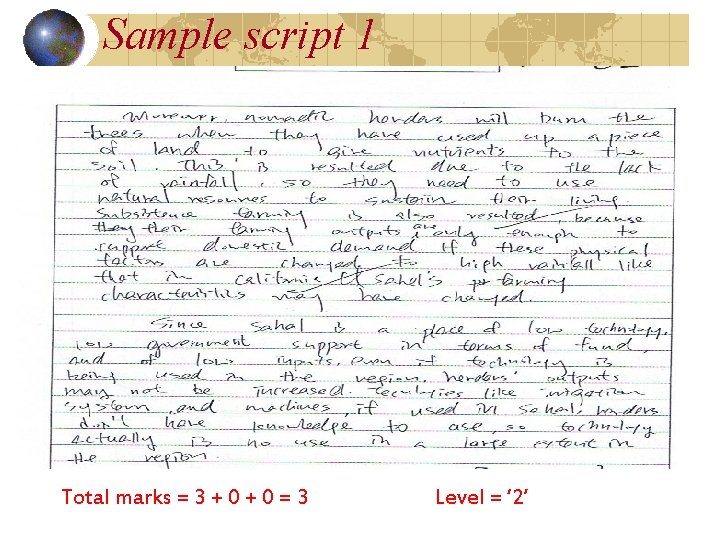 Sample script 1
Moreover, nomadic herders will burn the
trees when they have used up a piece
of land to give nutrients to the
soil. This is resulted due to the lack
of rainfall, so they need to use
natural resources to sustain their living
Subsistence farming is also resulted, because
they their farming outputs are only enough to
support domestic demand If these physical
factors are changed to high rainfall like
that in California Sahel's farming
characteristics may have changed.
Since Sahal is a place of low technology,
low government support in terms of fund,
and of low inputs. Even if technology is
being used in the region, herders' outputs
may not be increased. like irrigation
system, and machines, if used in Sahel, herders
don't have knowledge to use, so technology
actually is no use in a large extent in
the region.
Total marks = 3 + 0 + 0 = 3
Level = ‘2’